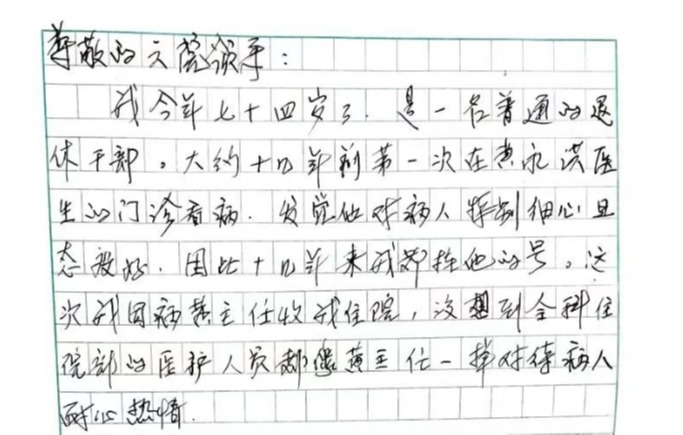 尊敬的六院领导：
我今年七十四岁了，是一名普通的退
休干部。大约十几年前第一次在黄永洪医
生的门诊看病，发觉他对病人特别细心且
态度好，因此十几年来我都挂他的号。这
次我因病黄主任收我住院，没想到全科住
院部的医护人员都像黄主任一样对待病人
耐心热情.